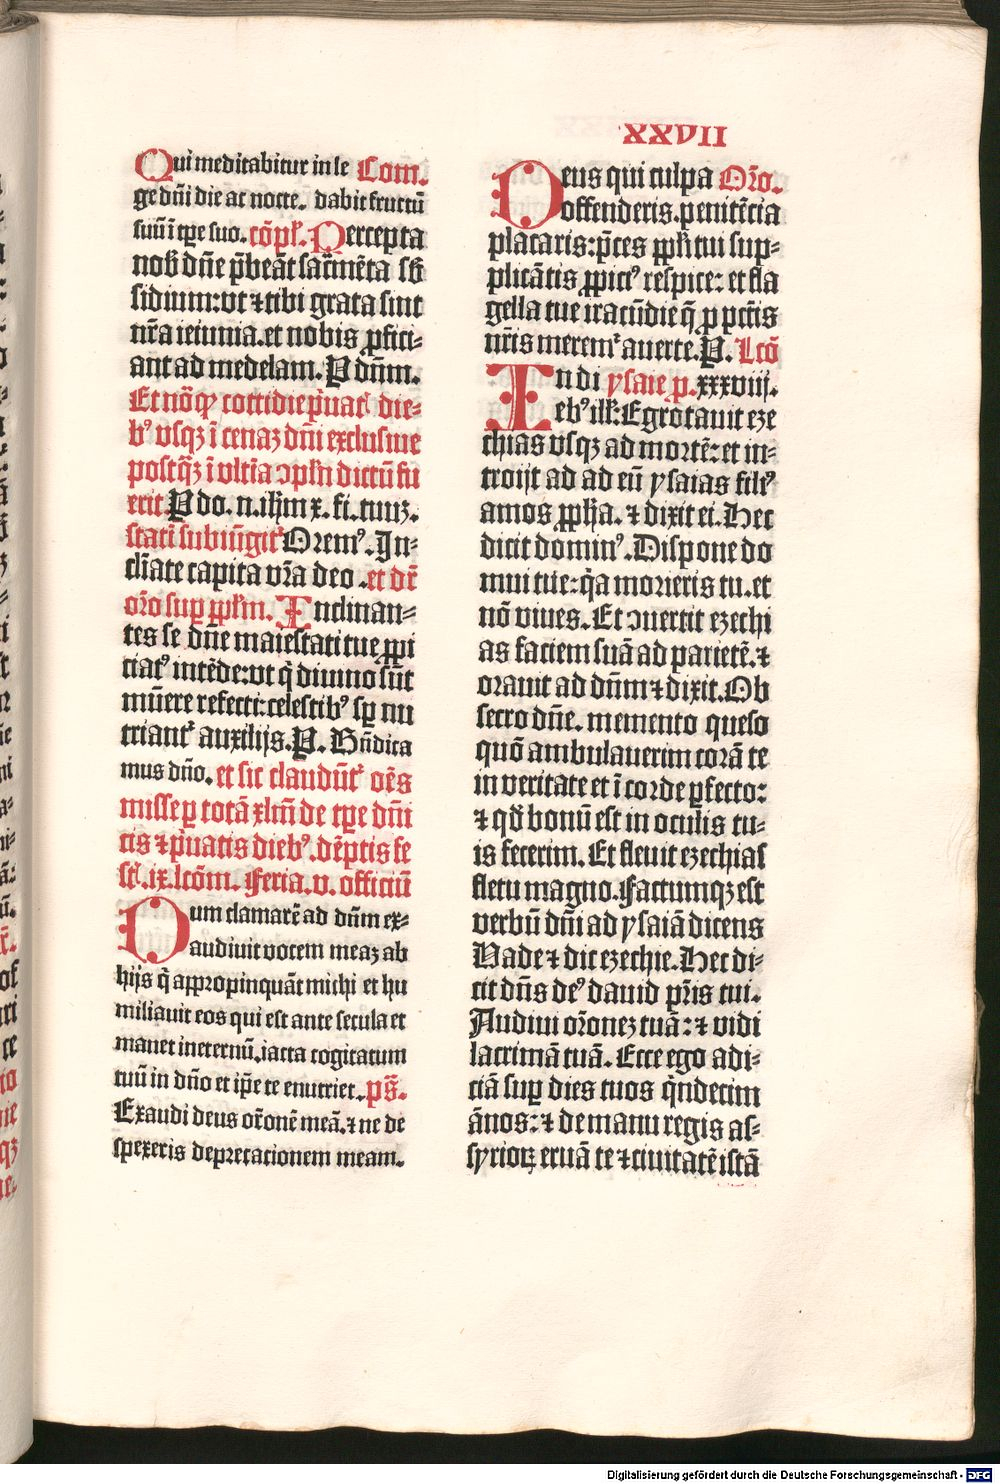 XXVII
Qui meditabitur in le Com.
ge dn̄i die ac nocte. dabit fructū
suū ī tp̄e suo. cōpl'. Percepta
nob̄ dn̄e p̄beāt sac̄mēta sb̄
sidium: vt ⁊ tibi grata sint
nr̄a ieiunia. et nobis ꝓfici-
ant ad medelam. P dn̄m.
Et nōꝙ cottidie p̄uatꝭ die-
bꝰ vsqꝫ ī cenaꝫ dn̄i exclusiue
postq̄ꝫ ī vltīa ↄpl'n dictū fu
erit. P do. n. ih̄m x. fi. tuuꝫ.
statī subiūgitꝭ Oremꝰ. In-
clīate capita vr̄a deo. et dr̄
or̄o suꝑ ppl'm. Inclinan-
tes se dn̄e maiestati tue ꝓpi
ciatꝰ intēde: vt q̄ diuino sūt
mūere refecti: celestibꝰ sꝑ nu
triantꝭ auxilijs. P. Bn̄dica
mus dn̄o. et sic claudūtꝭ oēs
misse ꝑ totā xlm̄ de tp̄e dn̄i
cis ⁊ p̄uatis diebꝰ. dēptis fe
stꝭ. ix. lcōm. Feria. v. officiū
Dum clamarē ad dn̄m ex-
audiuit vocem meaꝫ ab
hijs q̄ appropinquāt michi et hu
miliauit eos qui est ante secula et
manet in eternū. iacta cogitatum
tuū in dn̄o et ip̄e te enutriet. ps̄.
Exaudi deus or̄onē meā. ⁊ ne de
spexeris deprecacionem meam.
Deus qui culpa Or̄o.
offenderis. penitēcia
placaris: p̄ces ppl'i tui sup-
plicātis ꝓpiciꝰ respice: et fla
gella tue iracūdie q̄ ꝓ pctīs
nr̄is meremꝭ auerte. P. Lcō
In di ysaie ꝓ. xxxviij.
ebꝰ ill': Egrotauit eze
chias vsqꝫ ad mortē: et in-
troijt ad ad eū ysaias filiꝰ
amos ꝓph̄a. ⁊ dixit ei. Hec
dicit dominꝰ. Dispone do
mui tue: q̄a morieris tu. et
nō viues. Et ↄuertit ezechi
as faciem suā ad parietē. ⁊
orauit ad dn̄m ⁊ dixit. Ob
secro dn̄e. memento queso
quō ambulauerim corā te
in veritate et ī corde ꝑfecto:
⁊ qd̄ bonū est in ocul'is tu-
is fecerim. Et fleuit ezechias
fletu magno. Factumqꝫ est
verbū dn̄i ad ysaiā dicens
Vade ⁊ dic ezechie. Hec di-
cit dn̄s deꝰ dauid pr̄is tui.
Audiui or̄oneꝫ tuā: ⁊ vidi
lacrimā tuā. Ecce ego adi-
ciā suꝑ dies tuos q̄ndecim
ānos: ⁊ de manu regis as-
syrioꝝ eruā te ⁊ ciuitatē istā
Digitalisierung gefördert durch die Deutsche Forschungsgemeinschaft - DFG